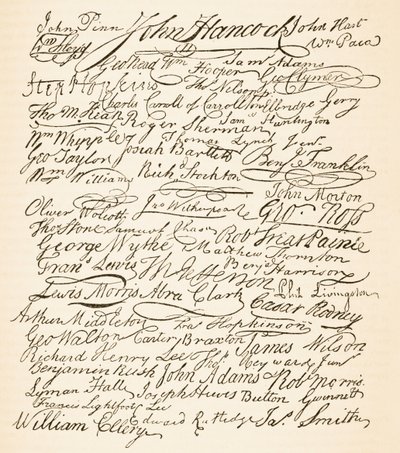 John Penn John Hancock John Hart
Wm Floyd Wm Paca
Geo Read Wm Hooper Sam Adams
Geo Clymer
Step Hopkins Tho Nelson
Charles Carroll of Carrollton Elbridge Gerry
Tho M:Kean Roger Sherman Saml Huntington
Wm Whipple Thomas Lynch Junr
Geo Taylor Josiah Bartlett Benj Franklin
Wm Williams Rich Stockton
John Morton
Oliver Wolcott Jno Witherspoon Geo Ross
Tho Stone Samuel Chase Robt Treat Paine
George Wythe Matthew Thornton
Frans Lewis Th Jefferson Benj Harrison
Lewis Morris Abra Clark Phil Livingston
Cesar Rodney
Arthur Middleton Fras Hopkinson
Geo Walton Carter Braxton James Wilson
Richard Henry Lee Thos Heyward Junr
Benjamin Rush John Adams Robt Morris
Lyman Hall Joseph Hewes Button Gwinnett
Francis Lightfoot Lee
William Ellery Edward Rutledge Jas Smith